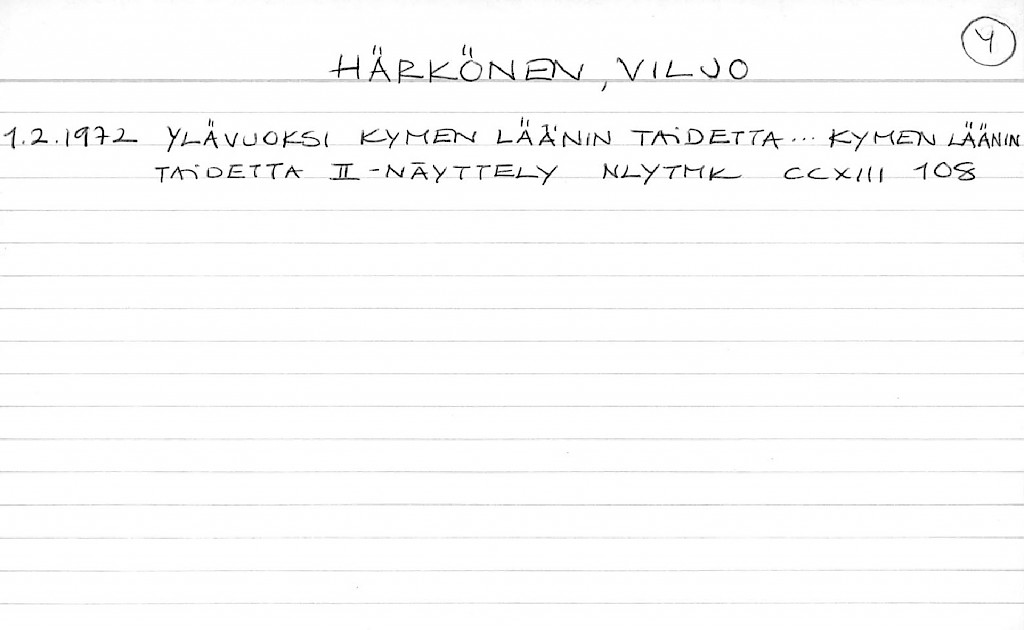 Y
HÄRKÖNEN, VILJO
1.2.1972 YLÄVUOKSI KYMEN LÄÄNIN TAIDETTA... KYMEN LÄÄNIN
TAIDETTA II -NÄYTTELY NLYTMK CCXIII 108